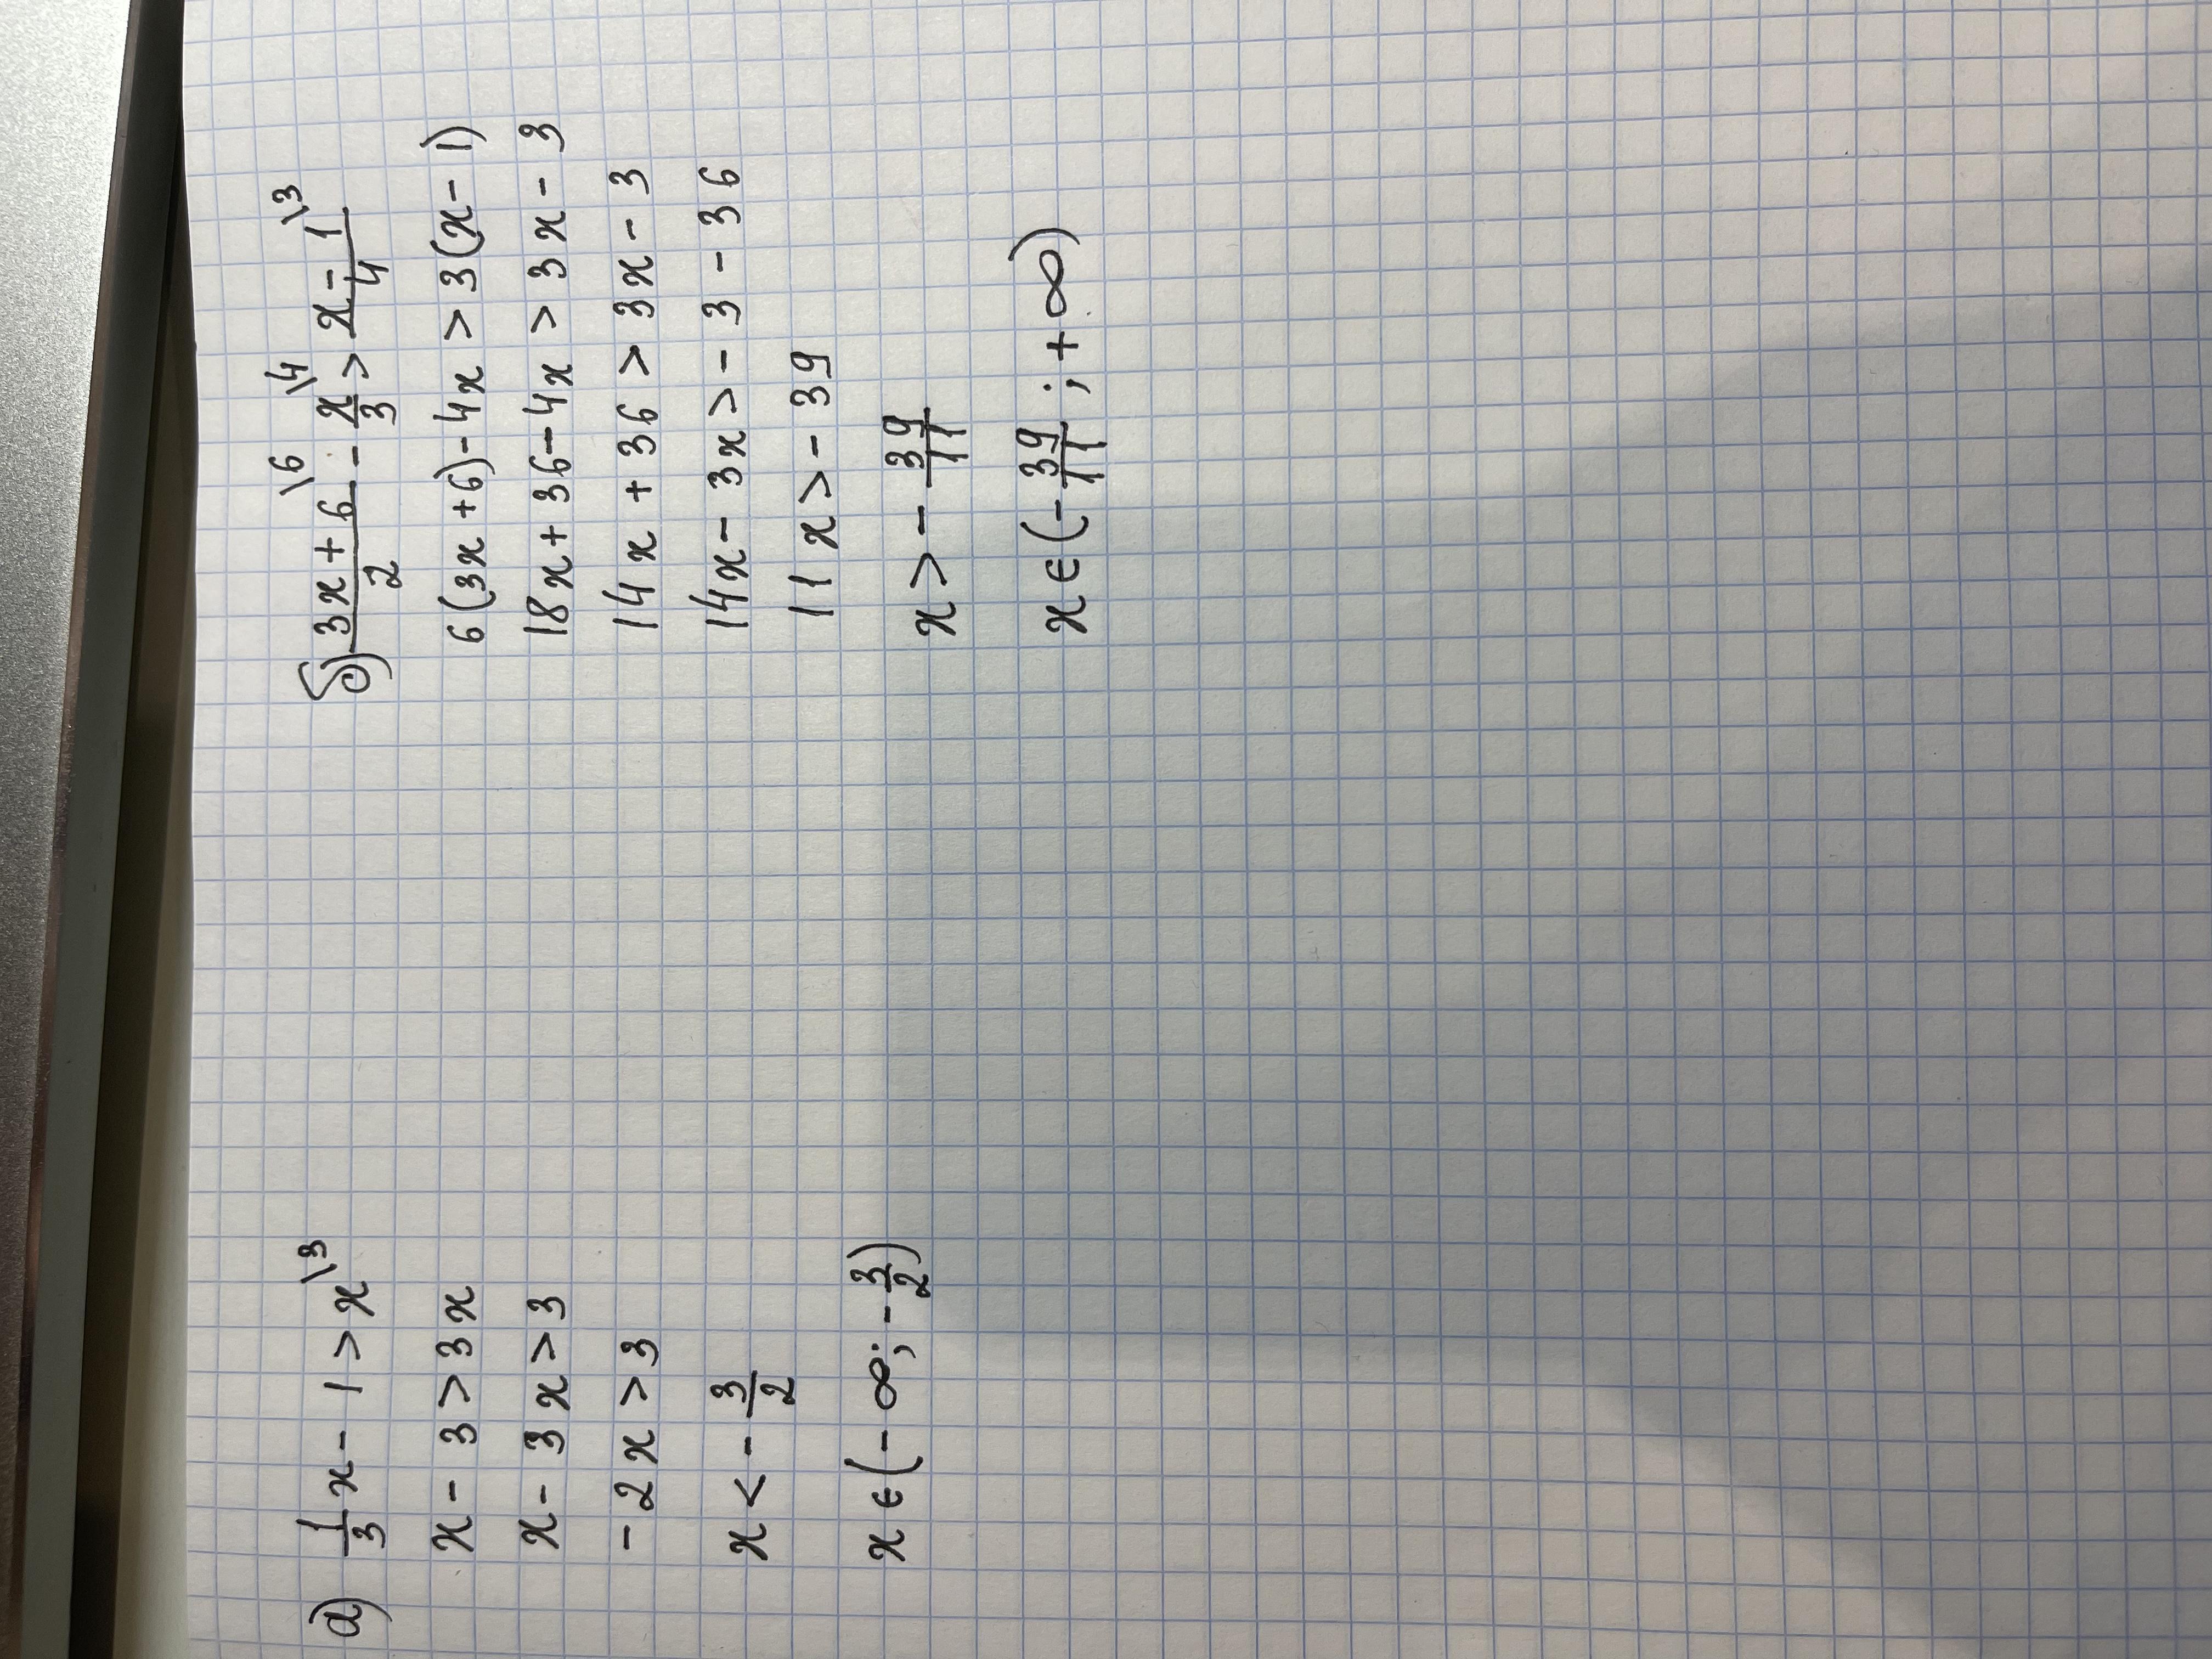 а) 1/3 x - 1 > x \3
x - 3 > 3x
x - 3x > 3
- 2x > 3
x < - 3/2
x ∈ (- ∞; - 3/2)
б) (3x + 6)/2 \6 - x/3 \4 > (x - 1)/4 \3
6(3x + 6) - 4x > 3(x - 1)
18x + 36 - 4x > 3x - 3
14x + 36 > 3x - 3
14x - 3x > - 3 - 36
11x > - 39
x > - 39/11
x ∈ (- 39/11 ; + ∞)